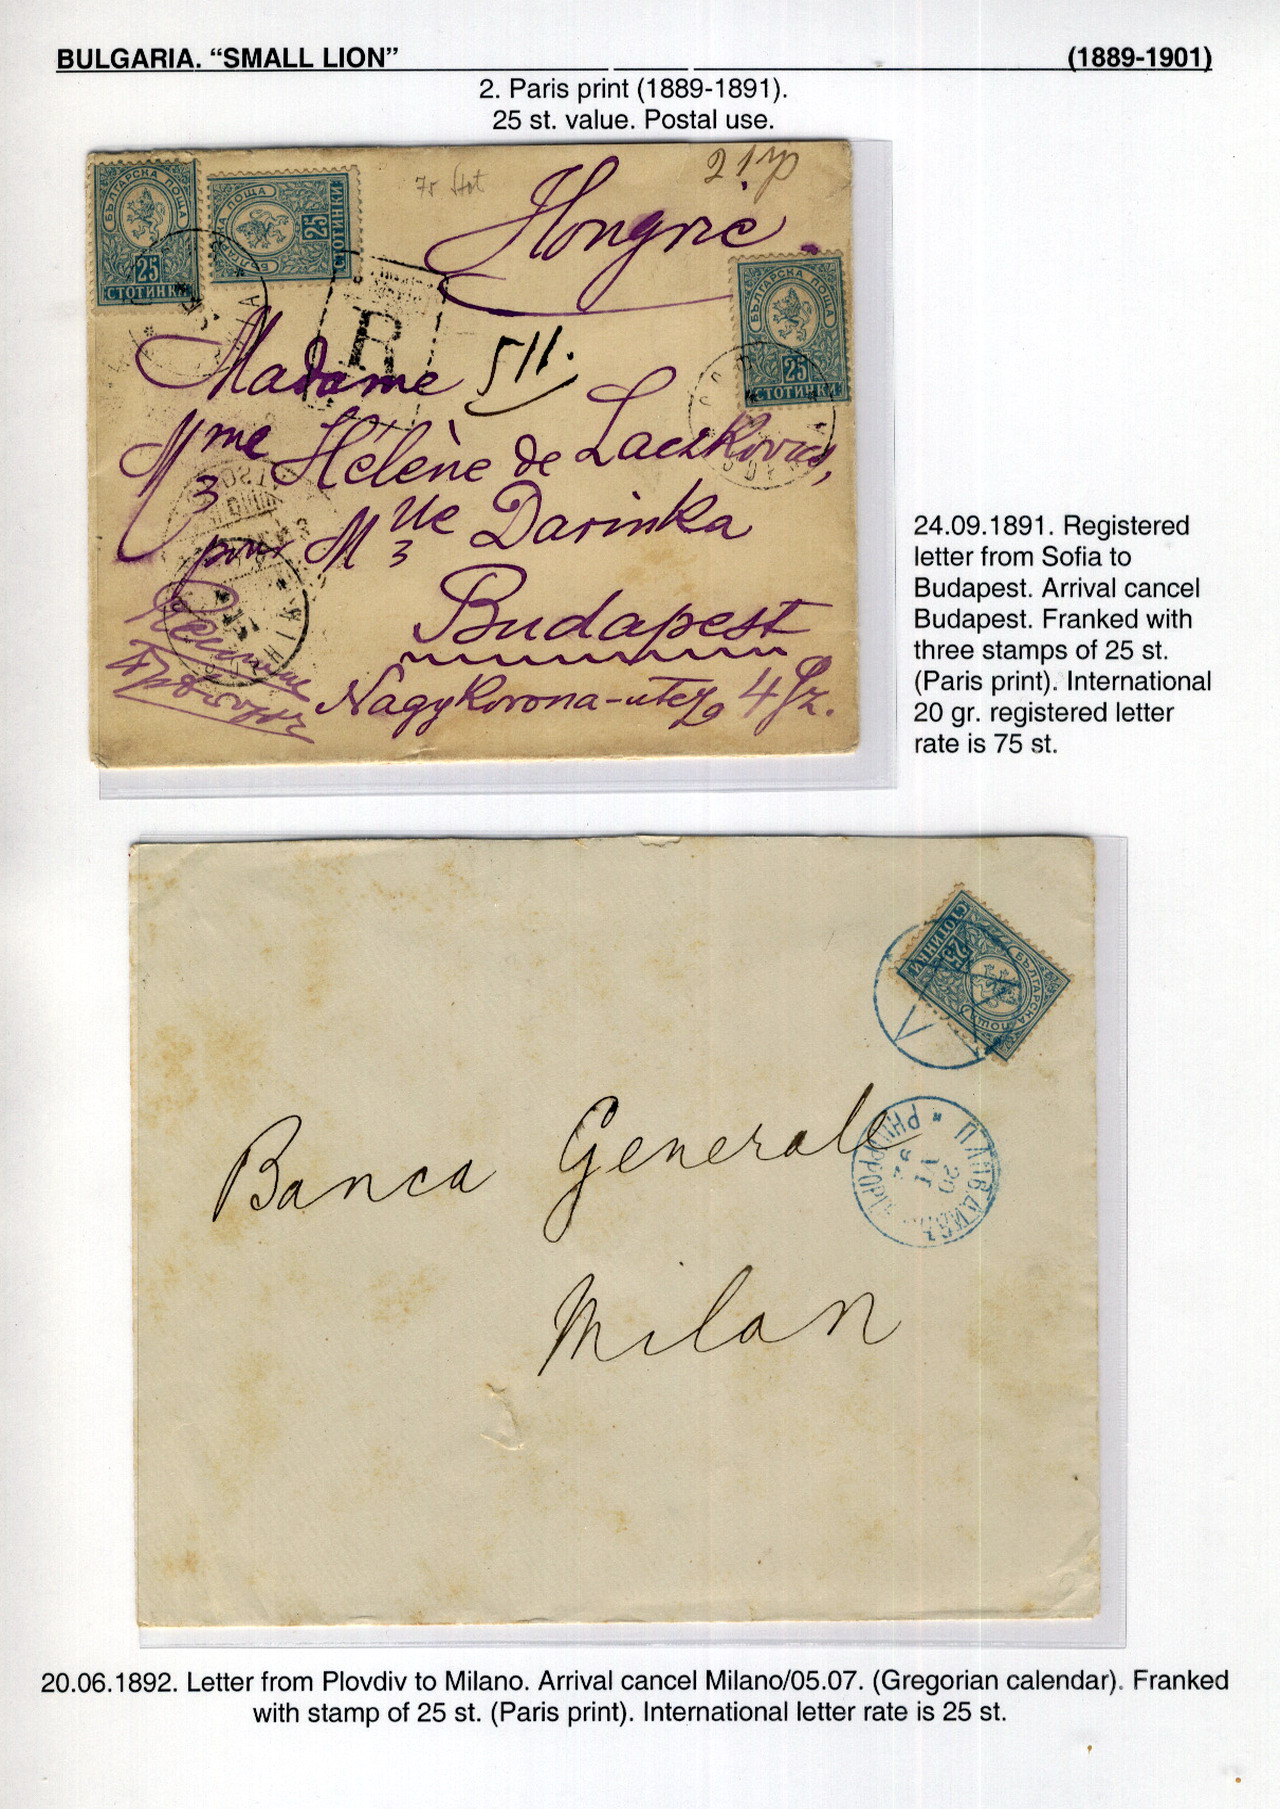 BULGARIA. “SMALL LION” (1889-1901)
2. Paris print (1889-1891).
25 st. value. Postal use.
БЪЛГАРСКА ПОЩА
25
СТОТИНКИ
БЪЛГАРСКА ПОЩА
25
СТОТИНКИ
75 Stot
Hongrie
БЪЛГАРСКА ПОЩА
25
СТОТИНКИ
R
511.
Madame
Mme Hélène de Laczkovics,
pour Mlle Darinka
Budapest
Nagykorona-utcza 4 sz.
24.09.1891. Registered
letter from Sofia to
Budapest. Arrival cancel
Budapest. Franked with
three stamps of 25 st.
(Paris print). International
20 gr. registered letter
rate is 75 st.
БЪЛГАРСКА ПОЩА
25
СТОТИНКИ
ПЛОВДИВЪ
20
VI
92
Banca Generale
Milan
20.06.1892. Letter from Plovdiv to Milano. Arrival cancel Milano/05.07. (Gregorian calendar). Franked
with stamp of 25 st. (Paris print). International letter rate is 25 st.